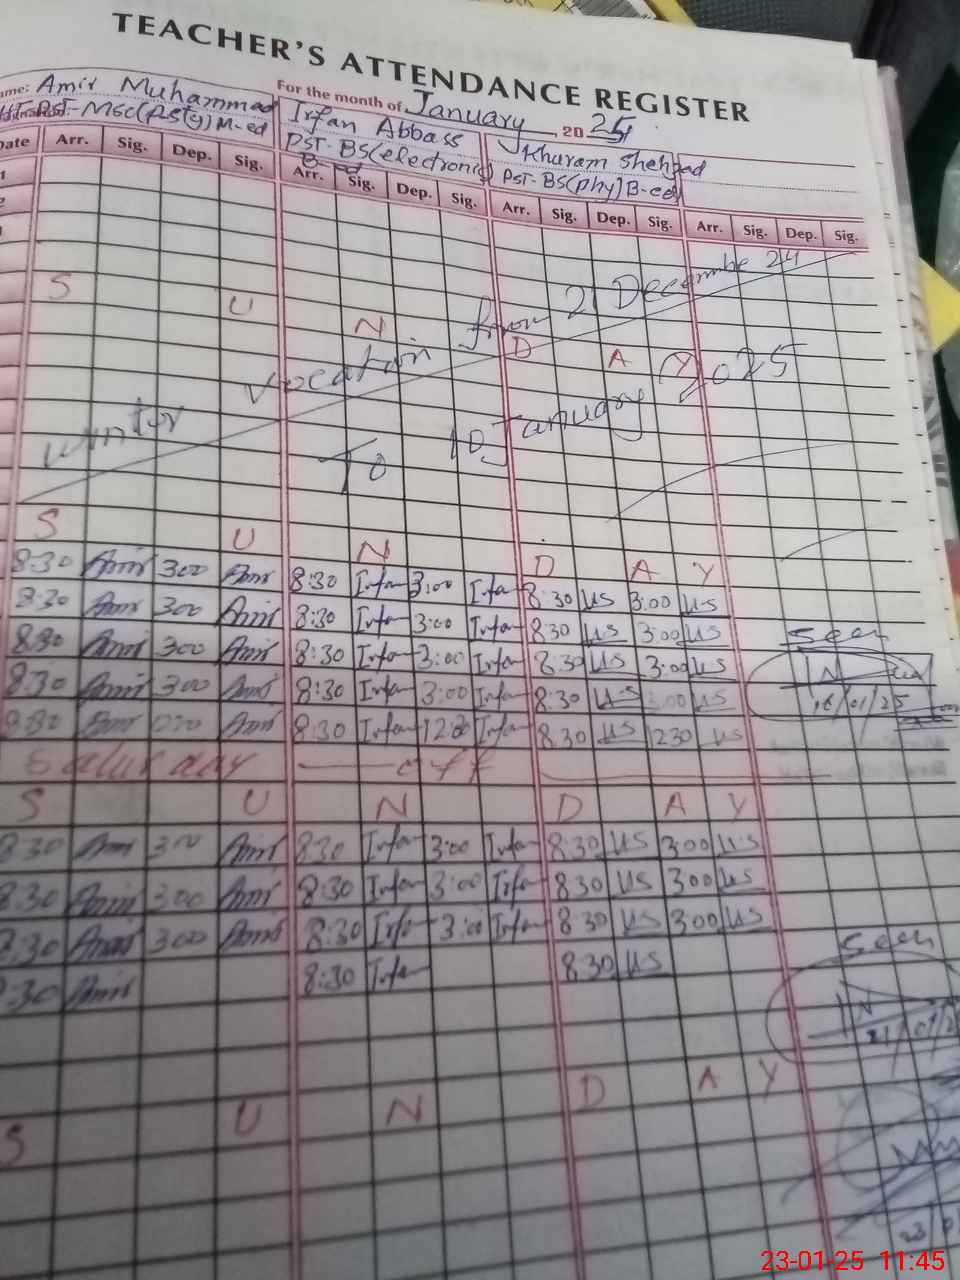 TEACHER'S ATTENDANCE REGISTER
ame: Amir Muhammad
For the month of January, 2025
PST-MSc(Psty) M-ed
Irfan Abbass
PST-BS(electronic)
B-ed
Khuram Shehzad
PST-BS(phy) B-ed
Date Arr. Sig. Dep. Sig. Arr. Sig. Dep. Sig. Arr. Sig. Dep. Sig. Arr. Sig. Dep. Sig.
1
2
S U N D A Y
winter vocatain from 21 Decembe 24
To 10 January 2025
S U N D A Y
8:30 Amir 300 Amir 8:30 Irfan 3:00 Irfan 8:30 us 3:00 us
8:30 Amir 300 Amir 8:30 Irfan 3:00 Irfan 830 us 3:00 us
8:30 Amir 300 Amir 8:30 Irfan 3:00 Irfan 8:30 us 3:00 us
8:30 Amir 300 Amir 8:30 Irfan 3:00 Irfan 8:30 us 3:00 us
8:30 Amir Amir 8:30 Irfan Irfan 8:30 us 1230 us
seen
16/01/25
Saturday off
S U N D A Y
8:30 Amir 300 Amir 8:30 Irfan 3:00 Irfan 8:30 us 3:00 us
8:30 Amir 300 Amir 8:30 Irfan 3:00 Irfan 830 us 300 us
8:30 Amir 300 Amir 8:30 Irfan 3:00 Irfan 830 us 300 us
8:30 Amir 8:30 Irfan 830 us
seen
21/01/2
S U N D A Y
23/0
23-01-25 11:45